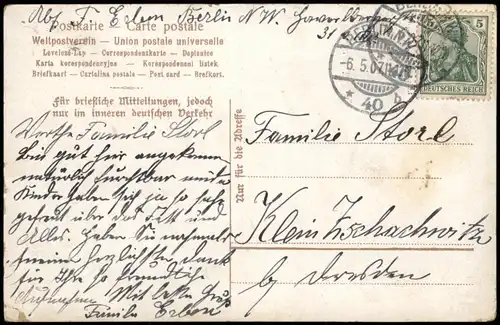 Abs. F. Erben Berlin N.W.
31
Postkarte — Carte postale
Weltpostverein – Union postale universelle
Levelező-Lap – Correspondenzkarte – Dopisnice
Karta korespondencyjna – Korespondenční lístek
Briefkaart – Cartolina postale – Post card – Brefkort.
Für briefliche Mitteilungen, jedoch
nur im inneren deutschen Verkehr
Nur für die Adresse
BERLIN
6.5.07
* 40 b
5
DEUTSCHES REICH
Werthe Familie Storl
Bin gut hier angekommen
natürlich furchtbar müde
Kinder haben sich ja so sehr
gefreut über das Fest und
Alles. Haben Sie nochmals
meinen herzlichsten Dank
für Ihre so freundliche
Aufnahme. Mit besten Gruß
Familie Erben
Familie Storl
Klein Zschachwitz
by Dresden